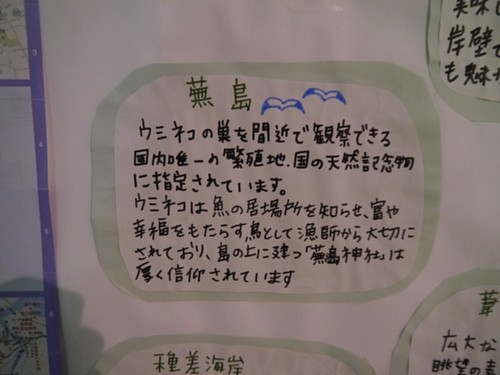 蕪島
ウミネコの巣を間近で観察できる
国内唯一の繁殖地.国の天然記念物
に指定されています。
ウミネコは魚の居場所を知らせ、富や
幸福をもたらす鳥として漁師から大切に
されており、島の上に建つ「蕪島神社」は
厚く信仰されています
美味し
岸壁で
も魅
種差海岸
葦
広大な
眺望の素
3
4
5
6